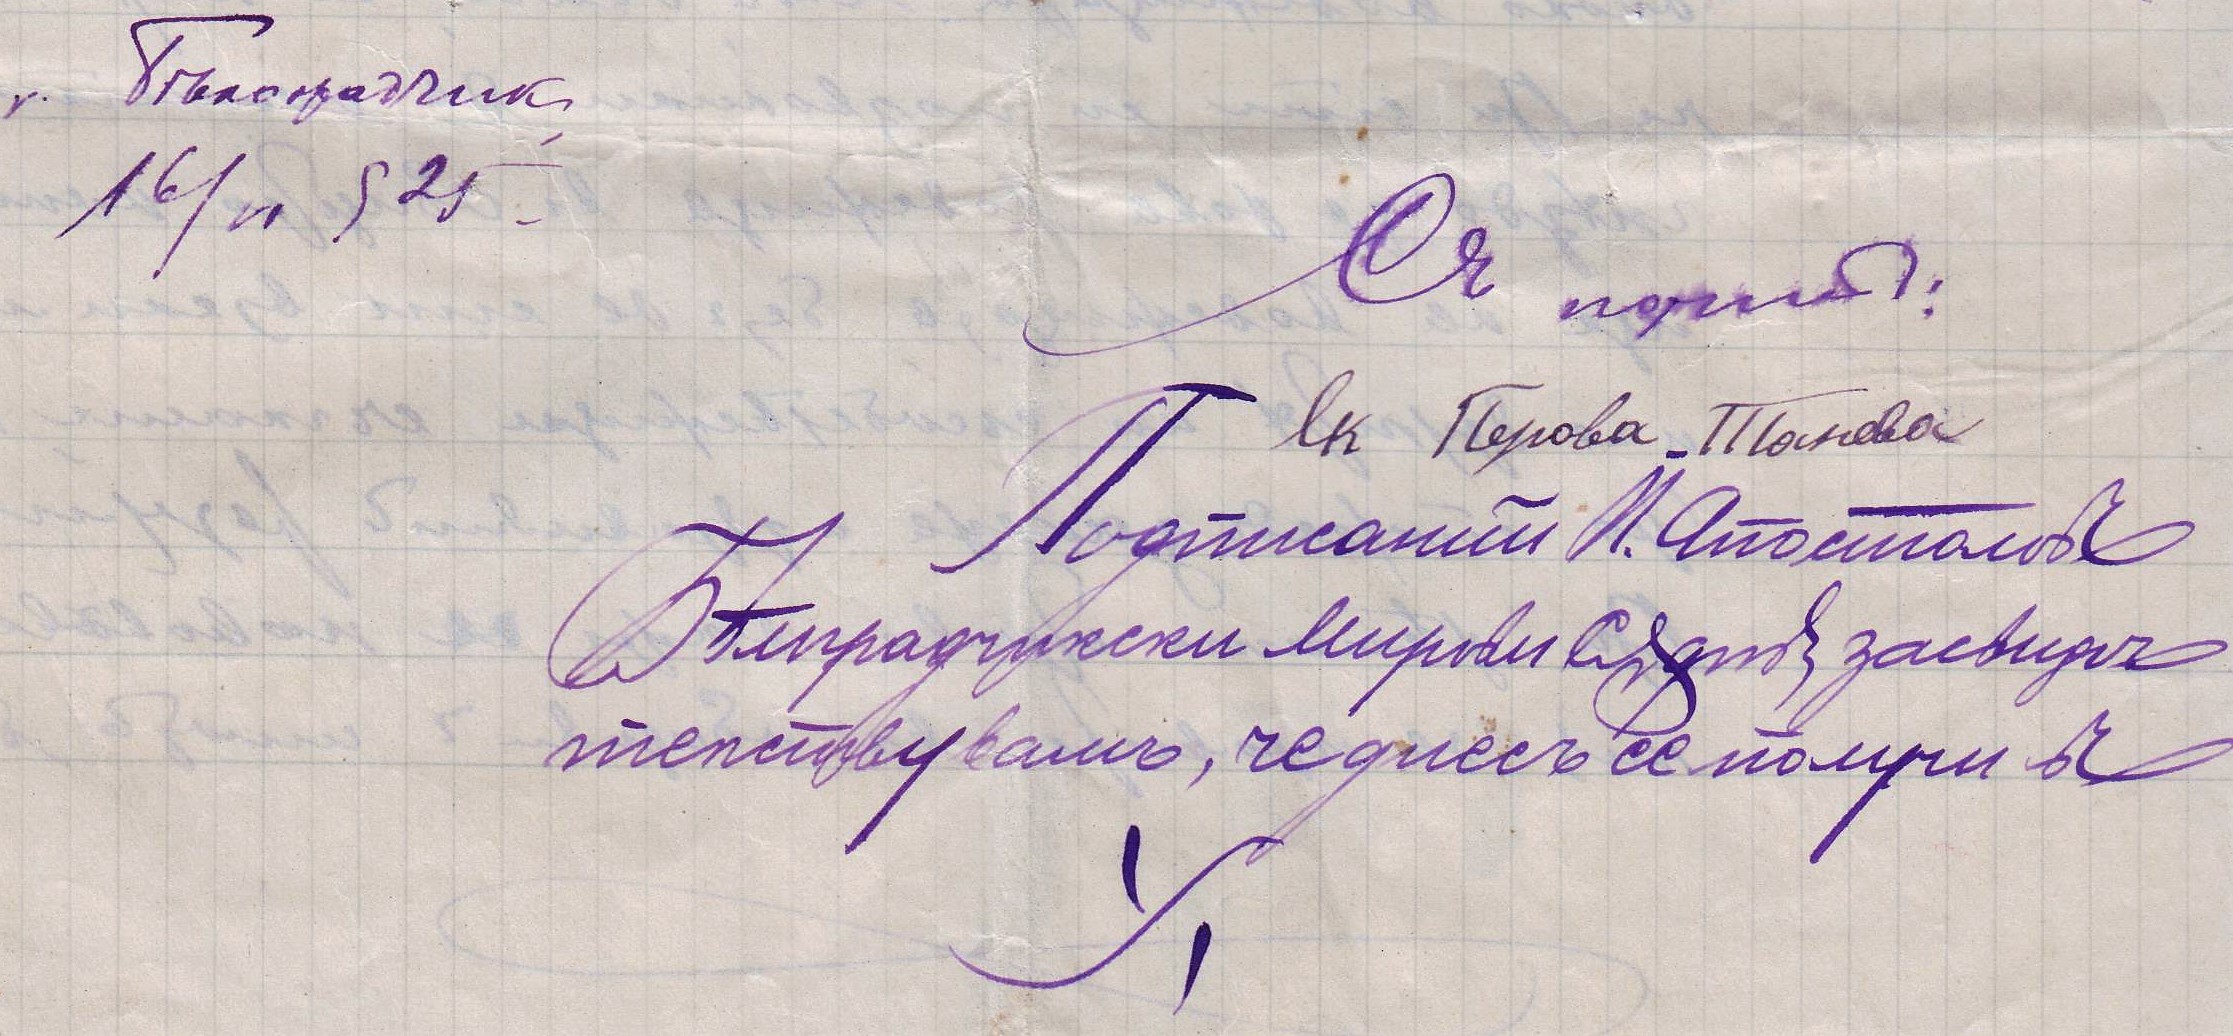 г. Бѣлоградчик,
16/VI 925
Съ почит:
Ек Перова Танева
Подписаний И. Апостоловъ
Бѣлоградчикски Мирови Сѫдия засвидѣ
телствувамъ, че днесъ се получи